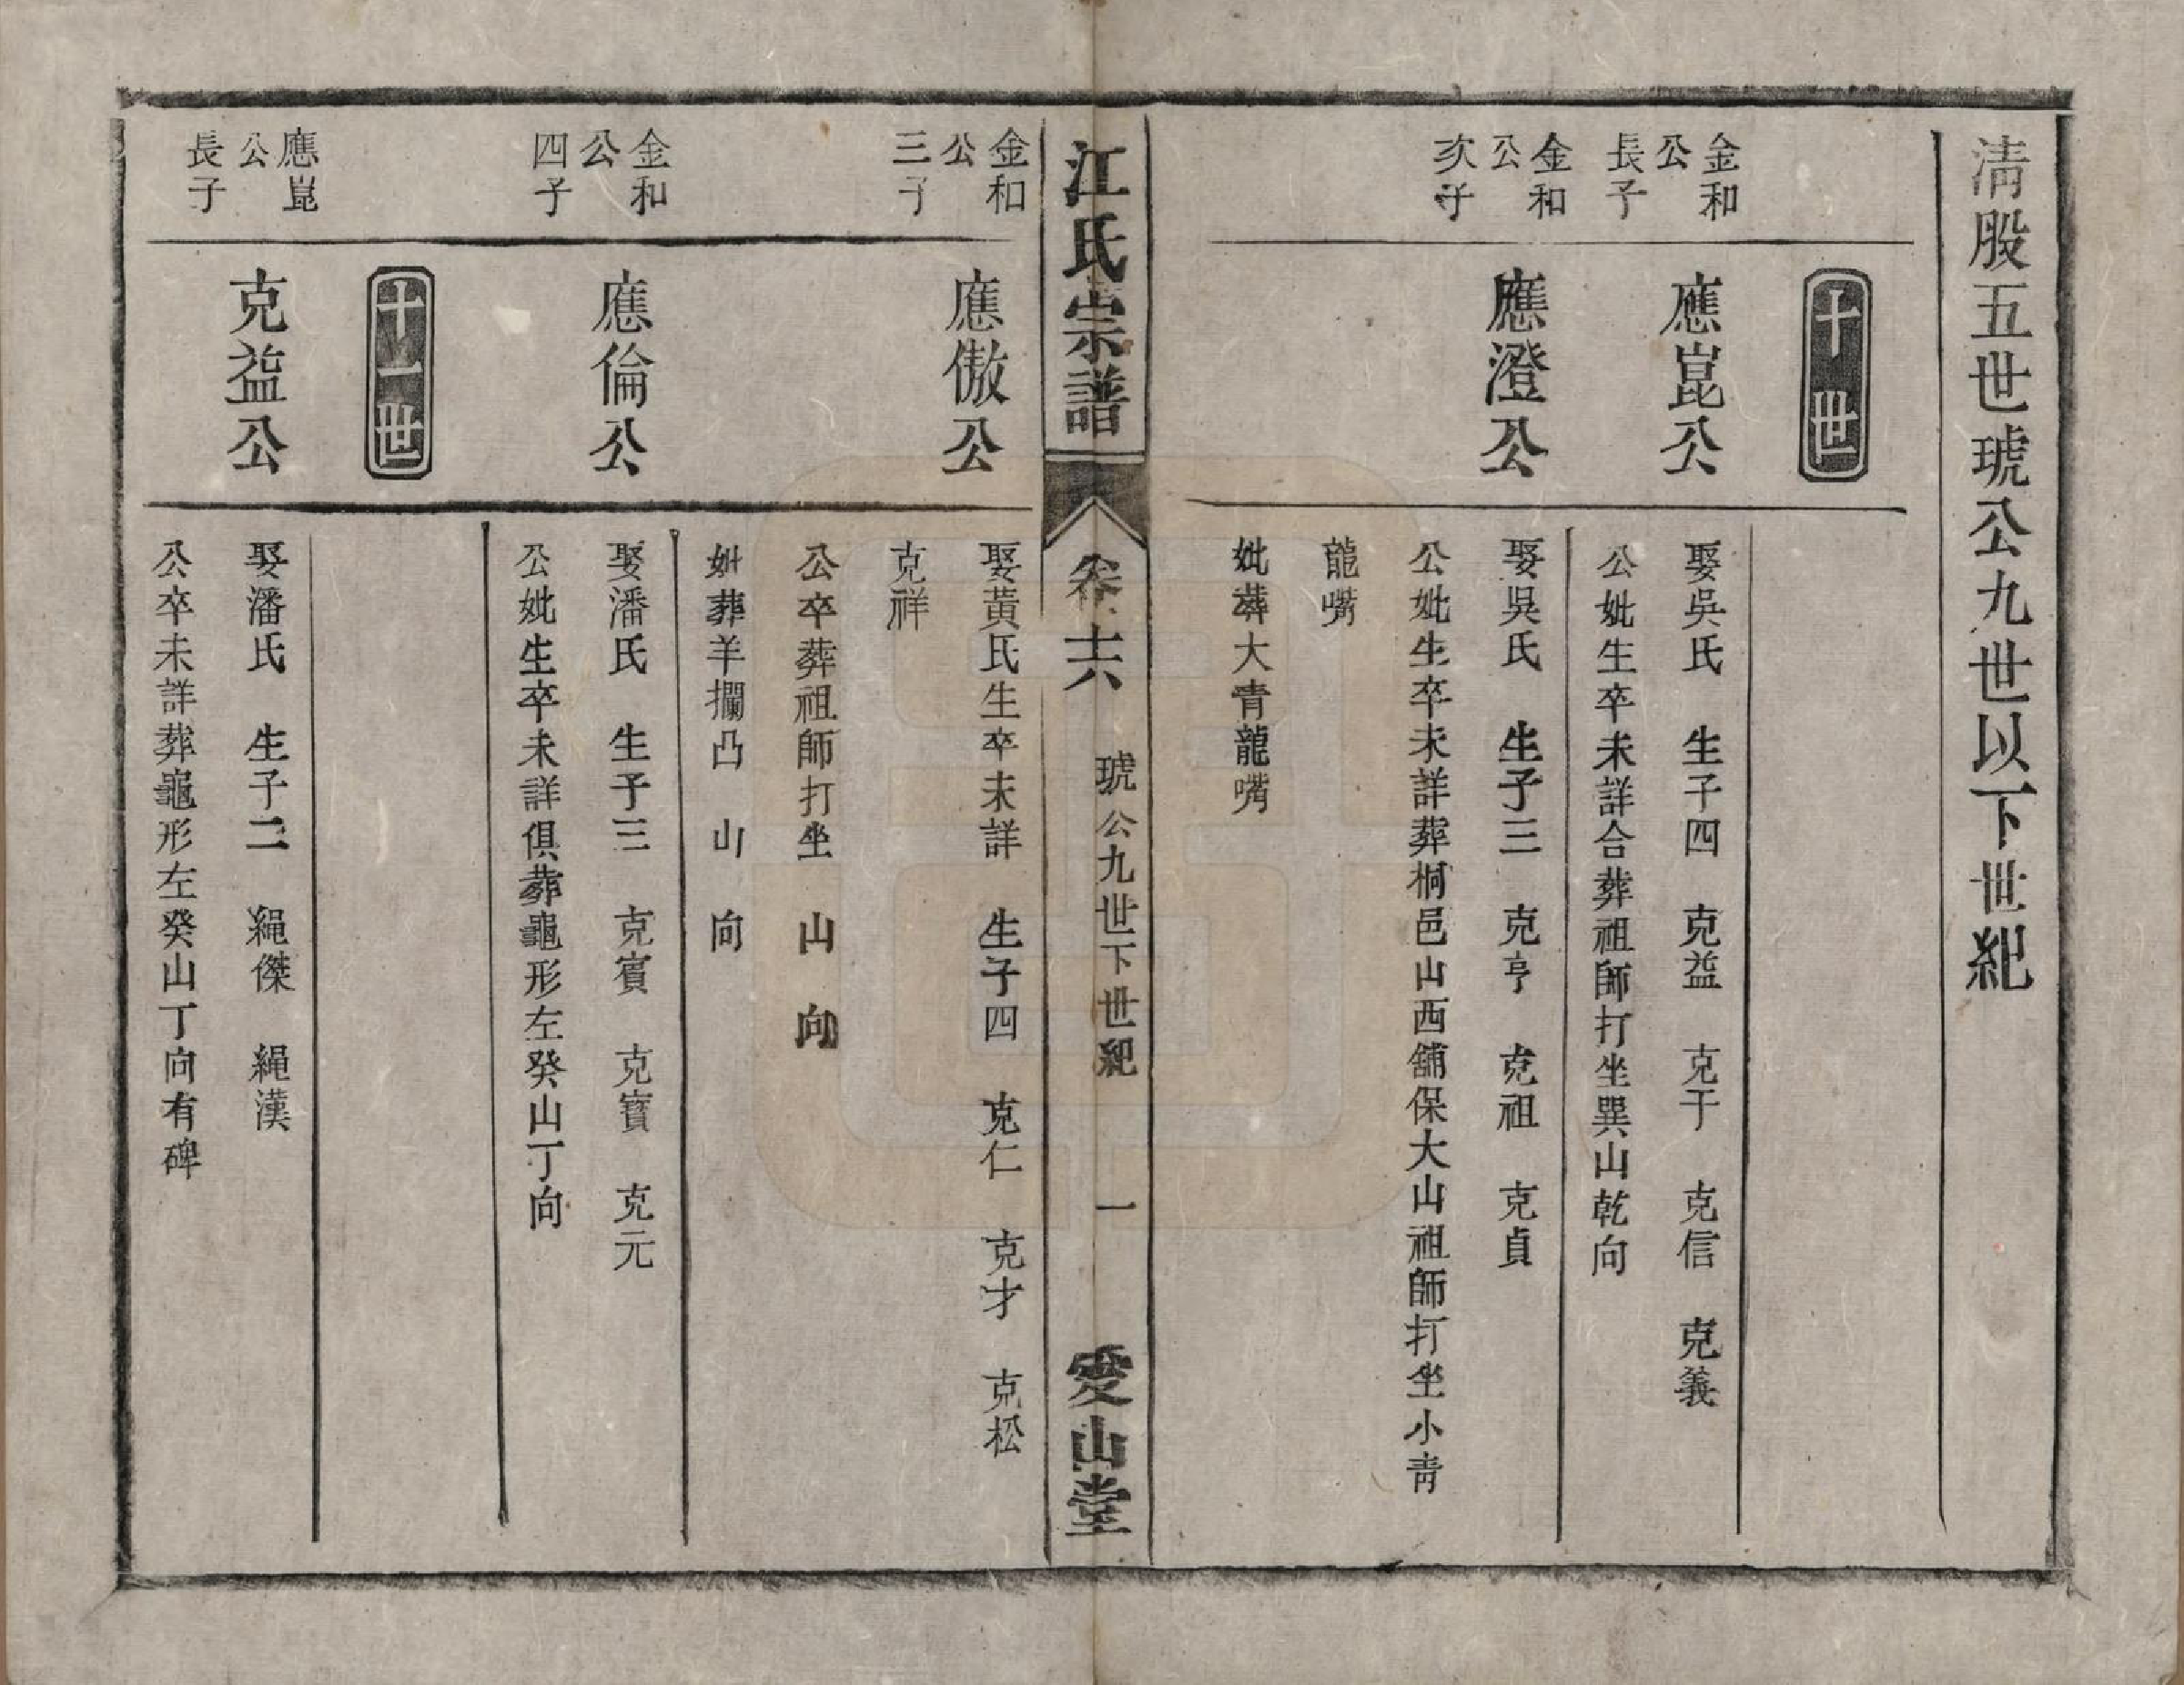 清股五世琥公九世以下世紀
十世
金和
公
長子
應崑公
娶吳氏 生子四 克益 克于 克信 克義
公妣生卒未詳合葬祖師打坐巽山乾向
金和
公
次子
應澄公
娶吳氏 生子三 克亨 克祖 克貞
公妣生卒未詳葬桐邑山西舖保大山祖師打坐小青
龍嘴
妣葬大青龍嘴
江氏宗譜 卷十六 琥公九世下世紀 一 愛山堂
金和
公
三子
應傲公
娶黃氏生卒未詳 生子四 克仁 克才 克松
克祥
公卒葬祖師打坐 山 向
妣葬羊攔凸 山 向
金和
公
四子
應倫公
娶潘氏 生子三 克賓 克寶 克元
公妣生卒未詳俱葬龜形左癸山丁向
十一世
應崑
公
長子
克益公
娶潘氏 生子二 繩傑 繩漢
公卒未詳葬龜形左癸山丁向有碑